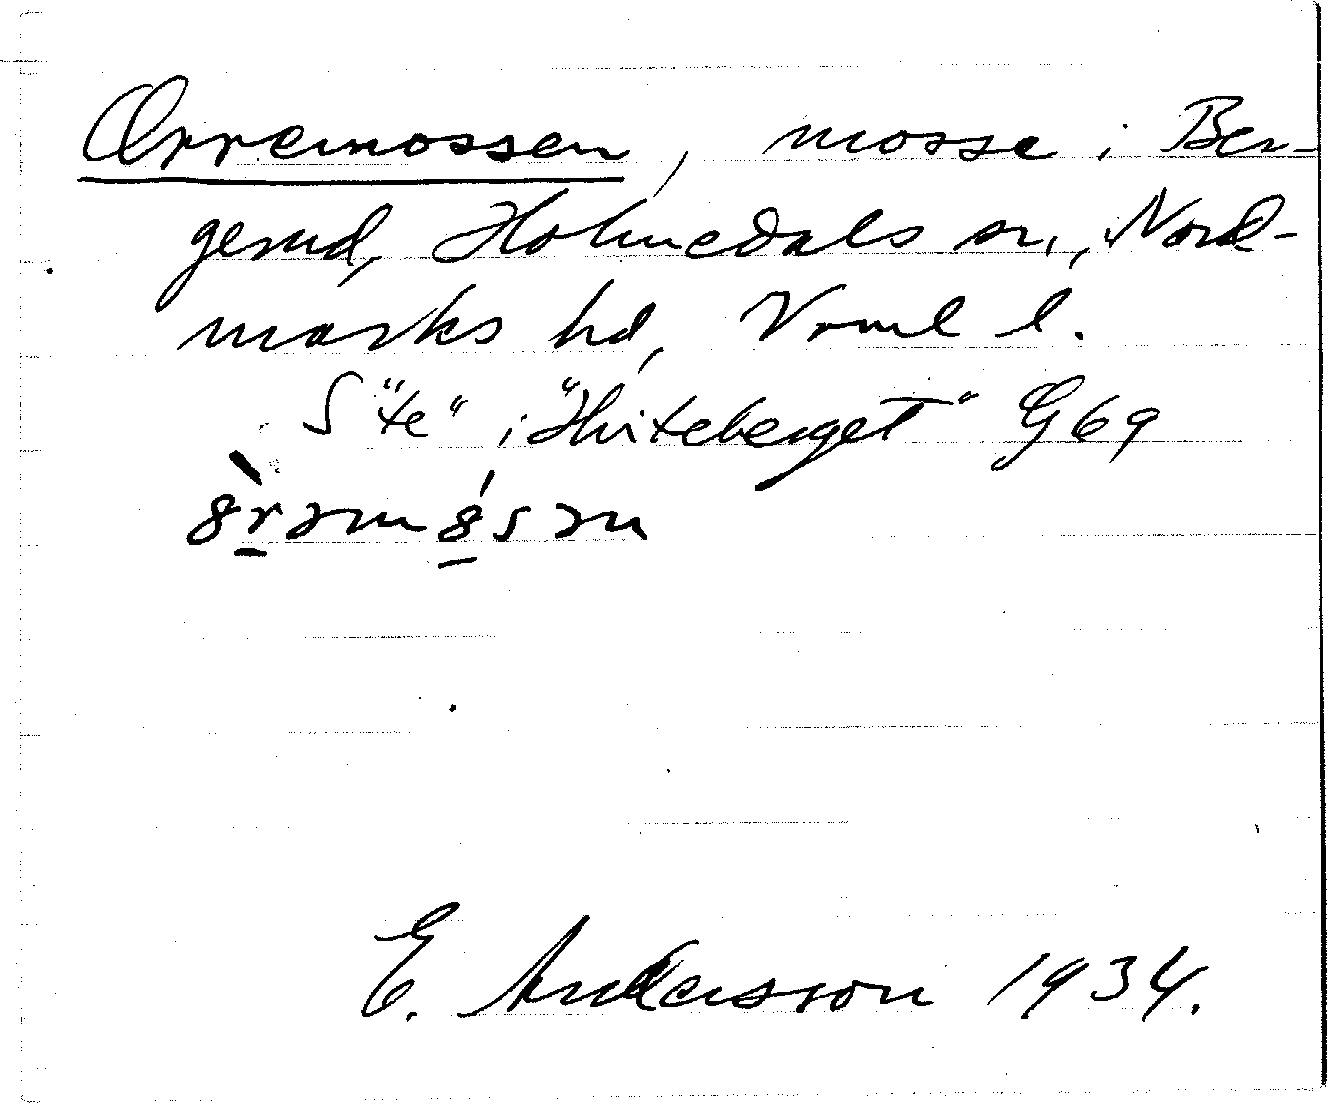 Orremossen, mosse i Ber-
gerud, Holmedals sn, Nord-
marks hd, Vrml l.
S "te" i "Hviteberget" G69
E. Andersson 1934.